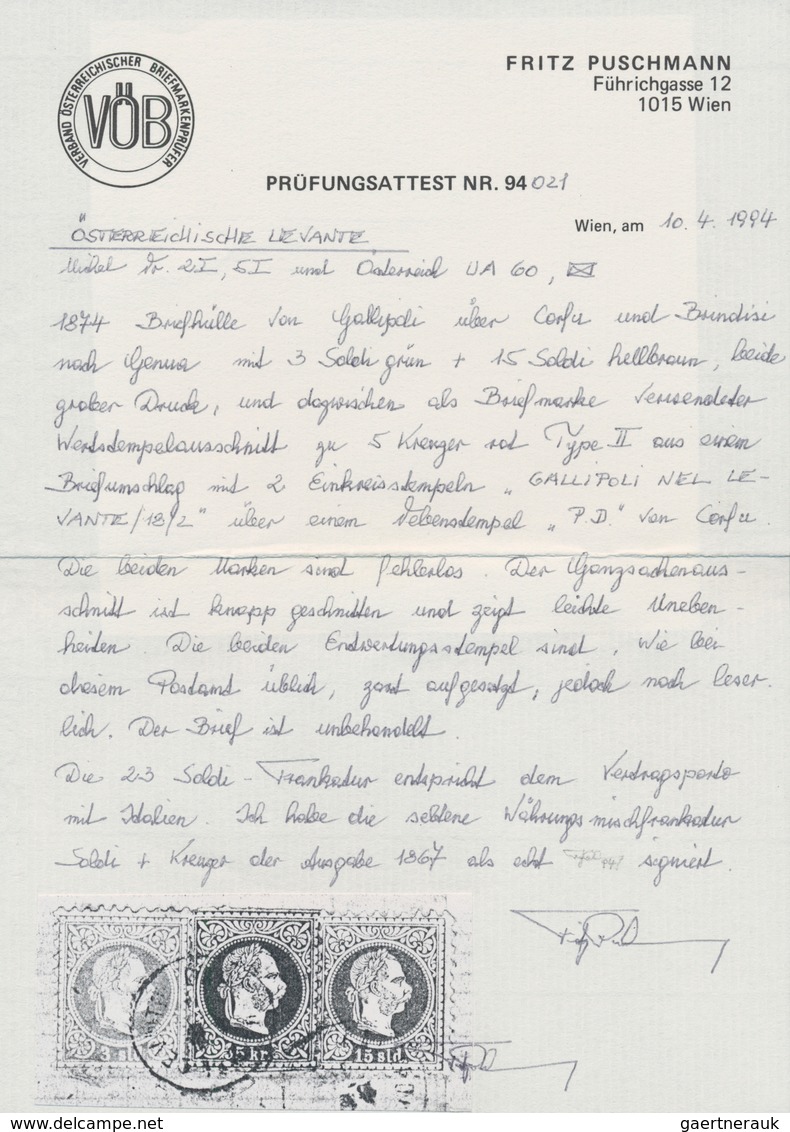 VERBAND ÖSTERREICHISCHER BRIEFMARKENPRÜFER
VÖB
FRITZ PUSCHMANN
Führichgasse 12
1015 Wien
PRÜFUNGSATTEST NR. 94 021
Wien, am 10. 4. 1994
ÖSTERREICHISCHE LEVANTE
Michel Nr. 2 I, 5 I und Österreich UA 60, ✉
1874 Briefhülle von Gallipoli über Corfu und Brindisi
nach Genua mit 3 Soldi grün + 15 Soldi hellbraun, beide
grober Druck, und dazwischen als Briefmarke verwendeter
Wertstempelausschnitt zu 5 Kreuzer rot Type II aus einem
Briefumschlag mit 2 Einkreisstempeln „GALLIPOLI NEL LE-
VANTE/13/2" über einem Nebenstempel „P.D." von Corfu.
Die beiden Marken sind fehlerlos. Der Ganzsachenaus-
schnitt ist knapp geschnitten und zeigt leichte Uneben-
heiten. Die beiden Entwertungsstempel sind, wie bei
diesem Postamt üblich, zart aufgesetzt, jedoch noch leser-
lich. Der Brief ist unbehandelt.
Die 23 Soldi-Frankatur entspricht dem Vertragsporto
mit Italien. Ich habe die seltene Währungsmischfrankatur
Soldi + Kreuzer der Ausgabe 1867 als echt signiert.
3 sld.
5 kr.
15 sld.
gaertnerauk